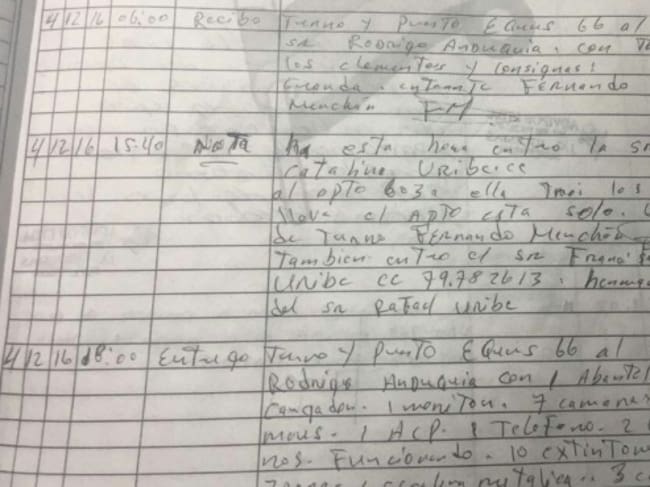 4 12 16 06:00 Recibo Turno y Puesto EQUUS 66 al
sr Rodrigo Anduquia. con
los elementos y consignas:
entrante FERNANDO
Menchan FM
4 12 16 15:40 Nota ha esta hora entro la sr
Catalina URibe.cc
al apto 603 ella los
lleva el APTO esta solo.
de Turno FERNANDO Menchan
tambien entro el sr
URibe cc 79.782613.
del sr Rafael URibe
4 12 16 18:00 Entrego Turno y Puesto EQUUS 66 al
RODRIGO ANDUQUIA con 1
Cargador. 1 moniton. 7 camaras
1 ACP. 1 Telefono. 2
nos. Funcionando. 10 extintor
metalica. 3